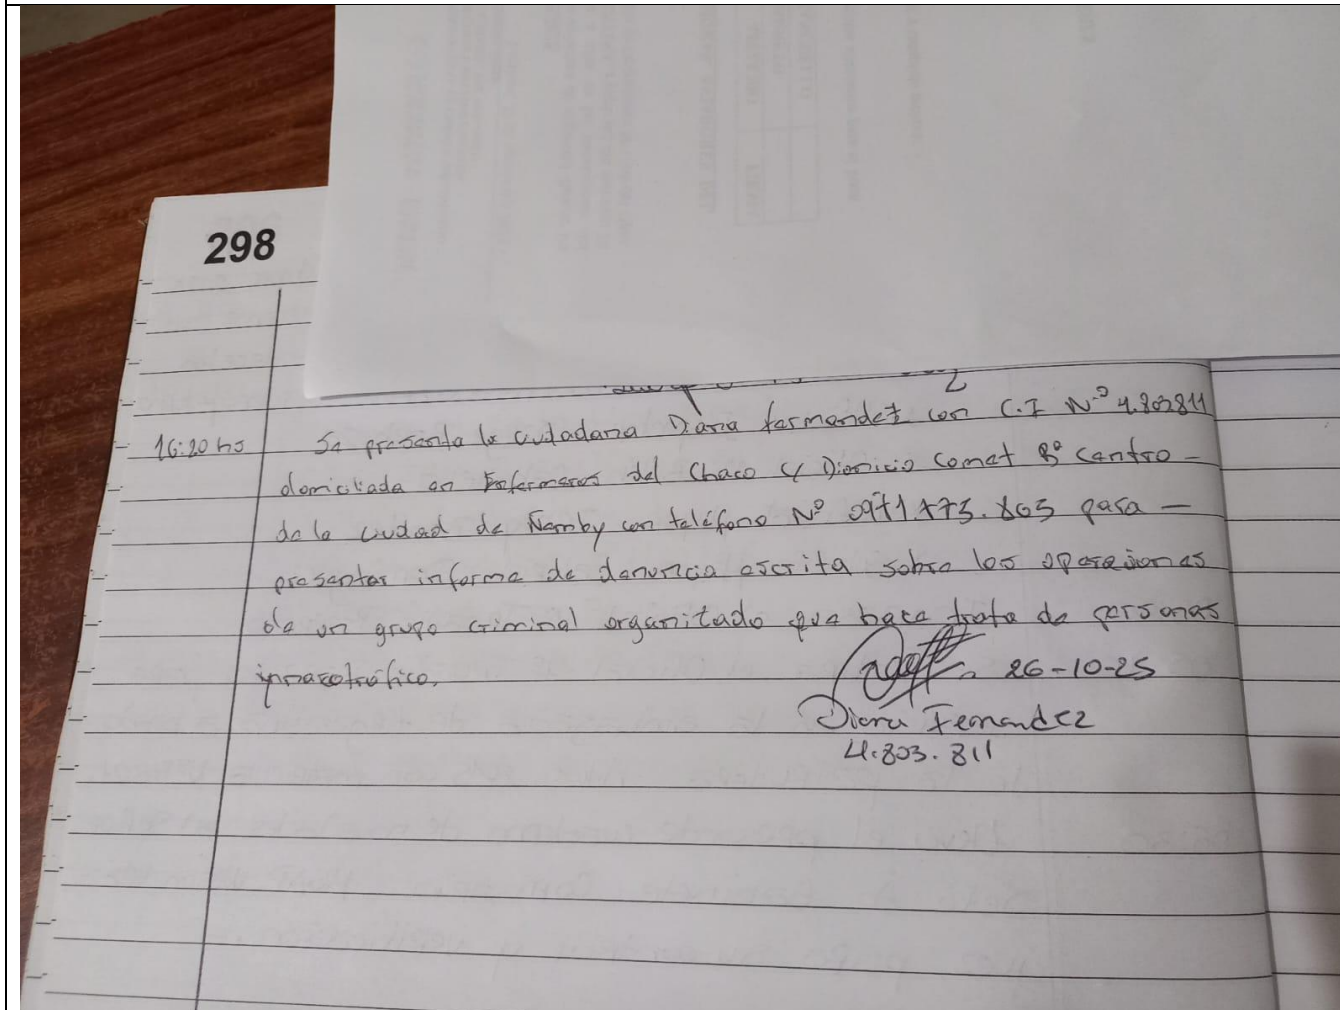 298
16:20 hs Se presenta la ciudadana Diana fernandez con C.I Nº 4.803811
domiciliada en Enfermeros del Chaco c/ Dionicio Comet Bº Centro -
de la ciudad de Ñemby con teléfono Nº para -
presentar informe de denuncia escrita sobre las operaciones
de un grupo criminal organizado que hace trata de personas
y narcotráfico.
26-10-25
Diana Fernandez
4.803.811